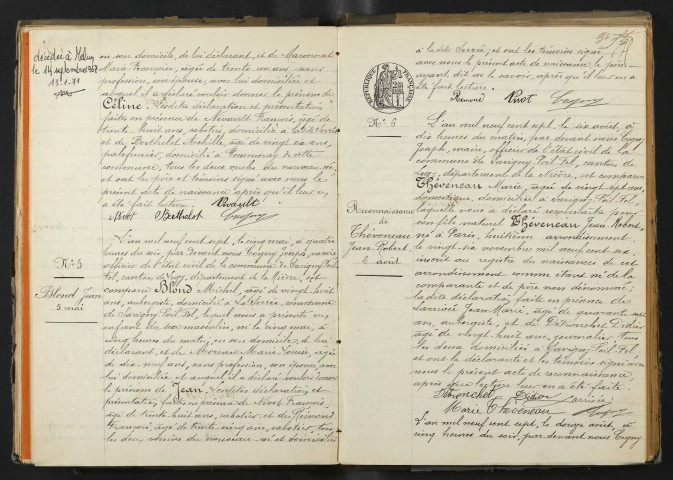 décédée à
le 14 septembre 1967
en son domicile, de lui déclarant, et de
Marie Françoise, âgée de trente un ans, sans
profession, son épouse, avec lui domiciliée et
auquel il a déclaré vouloir donner le prénom de
Céline. Lesdites déclaration et présentation
faites en présence de Nivault François, âgé de
trente huit ans, sabotier, domicilié à
et de Berthelot Achille, âgé de vingt six ans,
domicilié à
commune, tous les deux
et ont le père et témoins signé avec nous le
présent acte de naissance après qu'il leur en
a été fait lecture. Nivault
Berthelot Cogny
N° 5
Blond Jean
5 mai
L'an mil neuf cent sept, le cinq mai, à quatre
heures du soir, par devant nous Cogny Joseph, maire
officier de l'état civil de la commune de Savigny Poil
Fol, canton de Luzy, département de la Nièvre, est
comparu Blond Michel, âgé de vingt huit
ans, domicilié à La Serrée, commune
de Savigny Poil Fol, lequel nous a présenté un
enfant du sexe masculin, né le cinq mai, à
cinq heures du matin, en son domicile, de lui
déclarant, et de Moreau Marie Louise, âgée
de dix neuf ans, sans profession, son épouse, avec
lui domiciliée et auquel il a déclaré vouloir donner
le prénom de Jean. Lesdites déclaration et
présentation faites en présence de François,
âgé de trente huit ans, sabotier, et de Rémond
François, âgé de trente cinq ans, sabotier, tous
les deux voisins du nouveau né et domiciliés
à la dite Serrée; et ont les témoins signé
avec nous le présent acte de naissance, le père
ayant dit ne le savoir, après qu'il leur en a
été fait lecture.
Rémond Cogny
RÉPUBLIQUE FRANÇAISE
N° 6
Reconnaissance
de
Théveneau
Jean Robert
6 août
L'an mil neuf cent sept, le six août, à
dix heures du matin, par devant nous Cogny
Joseph, maire, officier de l'état civil de la
commune de Savigny Poil Fol, canton de
Luzy, département de la Nièvre, est comparue
Théveneau Marie, âgée de vingt sept ans,
domestique, domiciliée à Savigny Poil Fol,
laquelle nous a déclaré reconnaître pour
son fils naturel Théveneau Jean Robert,
né à Paris, huitième arrondissement,
le vingt six novembre mil neuf cent six
inscrit au registre de naissances de cet
arrondissement comme étant né de la
comparante et de père non dénommé;
la dite déclaration faite en présence de
Larrivée Jean Marie, âgé de quarante
ans, aubergiste, et de Détronchet Didier
âgé de vingt huit ans, journalier, tous
les deux domiciliés à Savigny Poil Fol
et ont la déclarante et les témoins signé avec
nous le présent acte de reconnaissance,
après que lecture leur en a été faite.
Détronchet Didier Larrivée
Marie Théveneau Cogny
L'an mil neuf cent sept, le douze août, à
cinq heures du soir, par devant nous Cogny